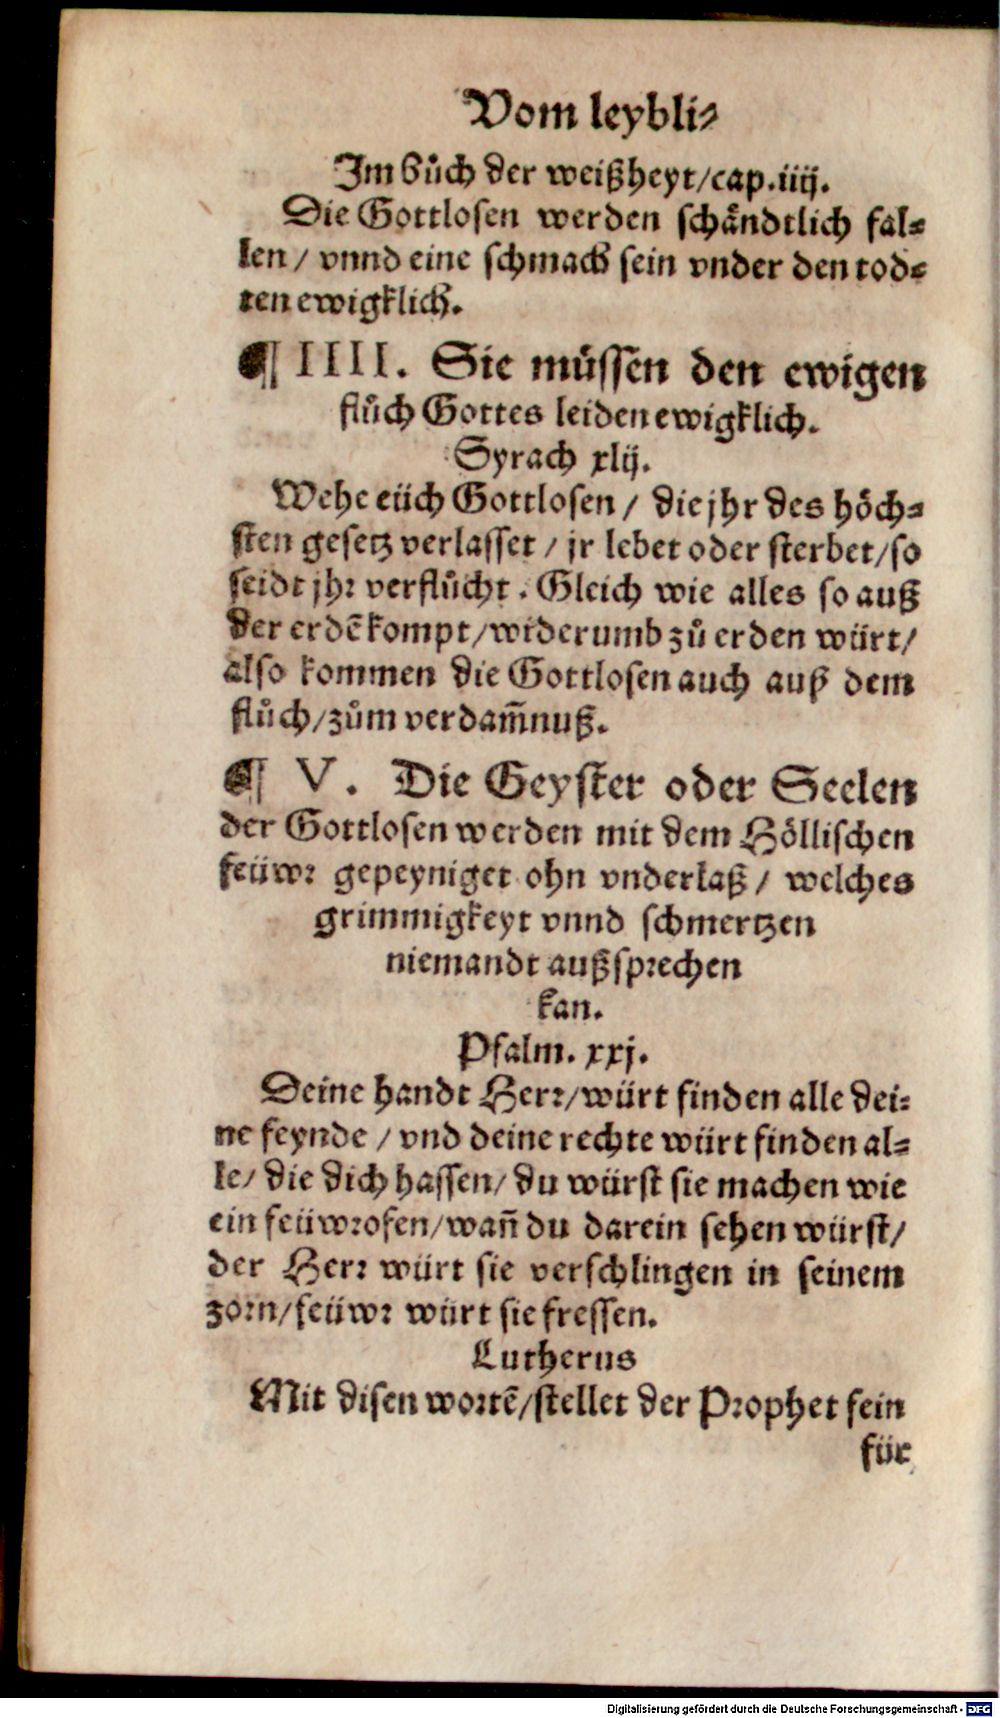 Vom leybli⸗
Im bůch der weißheyt/cap.iiij.
Die Gottlosen werden schåndtlich fal⸗
len / vnnd eine schmach sein vnder den tod⸗
ten ewigklich.
¶ IIII. Sie müssen den ewigen
flůch Gottes leiden ewigklich.
Syrach xlij.
Wehe eüch Gottlosen / die jhr des höch⸗
sten gesetz verlasset / jr lebet oder sterbet/so
seidt jhr verflůcht. Gleich wie alles so auß
der erdẽ kompt/widerumb zů erden würt/
also kommen die Gottlosen auch auß dem
flůch/zům verdam̃nuß.
¶ V. Die Geyster oder Seelen
der Gottlosen werden mit dem Höllischen
feüwr gepeyniget ohn vnderlaß / welches
grimmigkeyt vnnd schmertzen
niemandt außsprechen
kan.
Psalm. xxj.
Deine handt Herr/würt finden alle dei⸗
ne feynde / vnd deine rechte würt finden al⸗
le/ die dich hassen/ du würst sie machen wie
ein feüwrofen/wañ du darein sehen würst/
der Herr würt sie verschlingen in seinem
zorn/feüwr würt sie fressen.
Lutherus
Mit disen wortẽ/stellet der Prophet sein
für
Digitalisierung gefördert durch die Deutsche Forschungsgemeinschaft - DFG